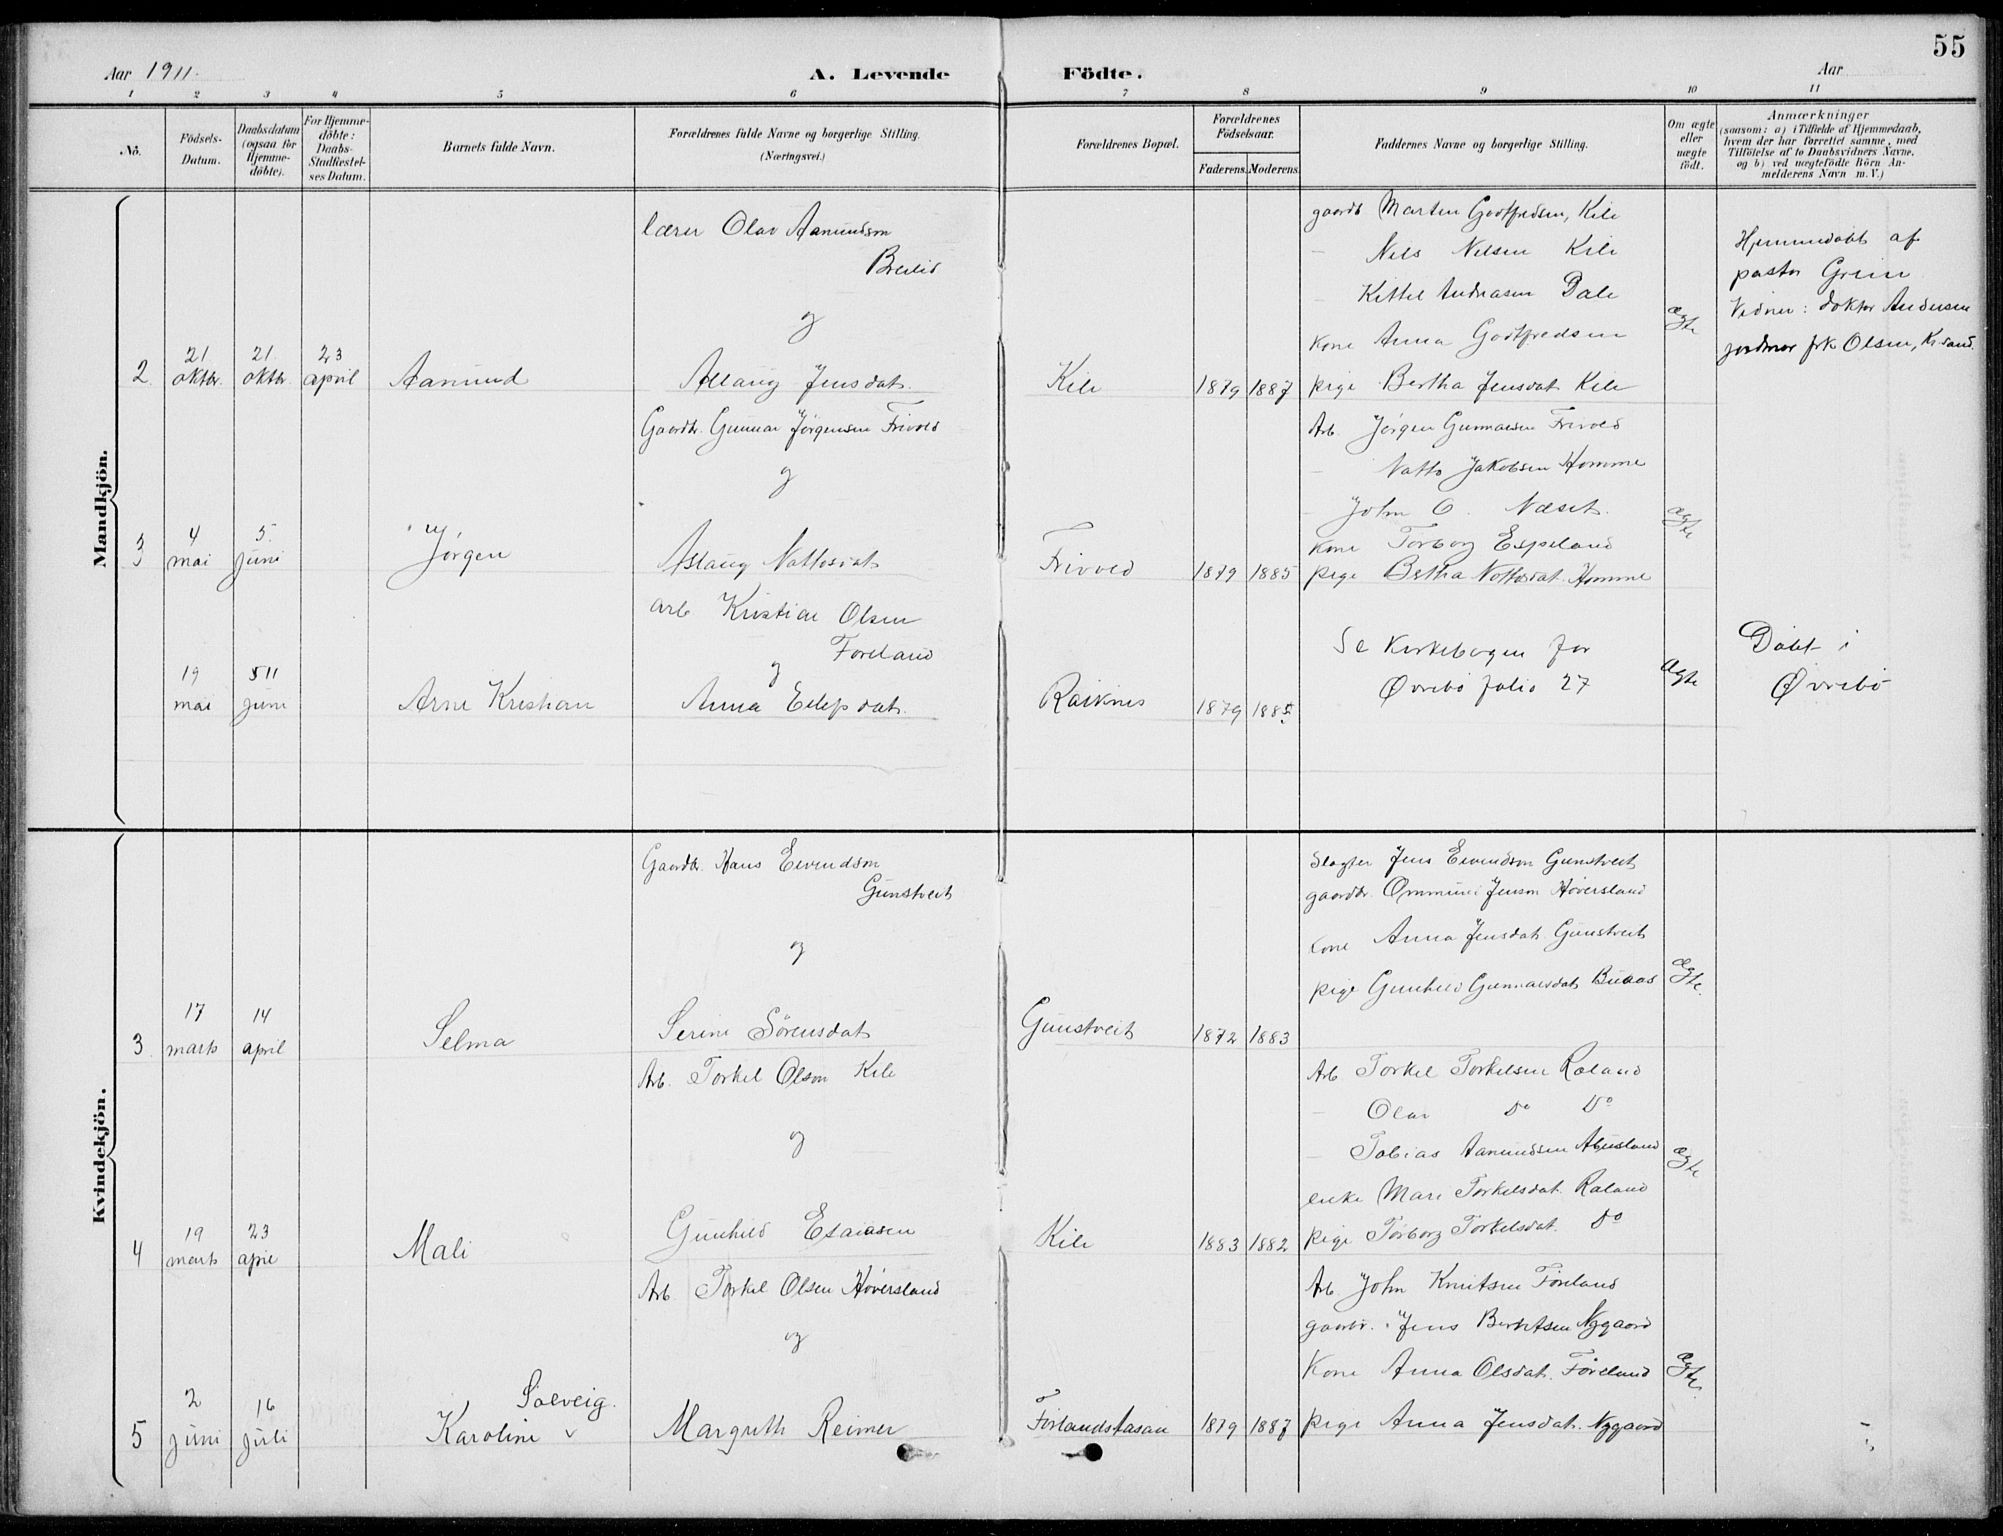 55
Aar 1911.
A. Levende Födte.
Aar
1 2 3 4 5 6 7 8 9 10 11
No.
Födsels-
Datum.
Daabsdatum
(ogsaa for
Hjemme-
döbte).
For Hjemme-
döbte:
Daabs-
Stadfæstel-
ses Datum.
Barnets fulde Navn.
Forældrenes fulde Navne og borgerlige Stilling.
(Næringsvei.)
Forældrenes Bopæl.
Forældrenes
Födselsaar.
Faderens. Moderens.
Faddernes Navne og borgerlige Stilling.
Om ægte
eller
uægte
födt.
Anmærkninger
(saasom: a) i Tilfælde af Hjemmedaab,
hvem der har forrettet samme, med
Tilföielse af to Daabsvidners Navne,
og b) ved uægtefödte Börn An-
melderens Navn m. V.)
Mandkjön.
2.
21
oktbr.
21.
oktbr.
23
april
Aamund
lærer Olav Aamundson
Breilid
og
Aslaug Jensdat.
Kile
1879 1887
gaardb Marten Godtfredsen, Kile
— Nels Nelsen Kile
— Kittel Andreasen Dale
Kone Anna Godtfredsen
pige Bertha Jensdat. Kile
ægte
Hjemmedøbt af
pastor Greim
Vidner: doktor Andersen
jordmor frk Olsen, Kr.sand.
3
4
mai
5.
juni
Jørgen
Gaardbr. Gunnar Jørgensen Frivold
og
Aslaug Nottosdat.
Frivold
1879 1885
Arb. Jørgen Gunnarsen Frivold
— Notto Jakobsen Homme
— John O. Næset.
Kone Torborg Espeland
pige Bertha Nottosdat. Homme
ægte
19
mai
11
juni
Arne Kristian
arb Kristian Olsen
Foreland
og
Anna Eilefsdat.
Raiknes
1879 1885
Se Kirkebogen for
Øvrebö folio 27
ægte
Döbt i
Øvrebö
Kvindekjön.
3.
17
marts
14
april
Selma
Gaardbr. Hans Eivindson
Gunstveit
og
Serine Sörensdat.
Gunstveit
1872 1883
Slagter Jens Eivindson Gunstveit
gaardbr. Ommund Jenson Höversland
Kone Anna Jensdat. Gunstveit
pige Gunhild Gunnarsdat. Buaas
ægte.
4
19
marts
23
april
Mali
Arb. Torkel Olson Kile
og
Gunhild Esaiasen
Kile
1883 1882
Arb Torkel Torkelsen Røland
— Olav Do Do
— Tobias Aamundsen Abusland
enke Mari Torkelsdat. Røland
pige Torborg Torkelsdat. Do
ægte
5
2
juni
16
juli
Solveig.
Karoline v
Arb. Torkel Olsen Höversland
og
Margreth Reimer
Förlandsaasan
1879 1887
Arb John Knutsen Föreland
gaardbr. Jens Berntsen Nygaard
Kone Anna Olsdat. Föreland
pige Anna Jensdat. Nygaard
ægte.